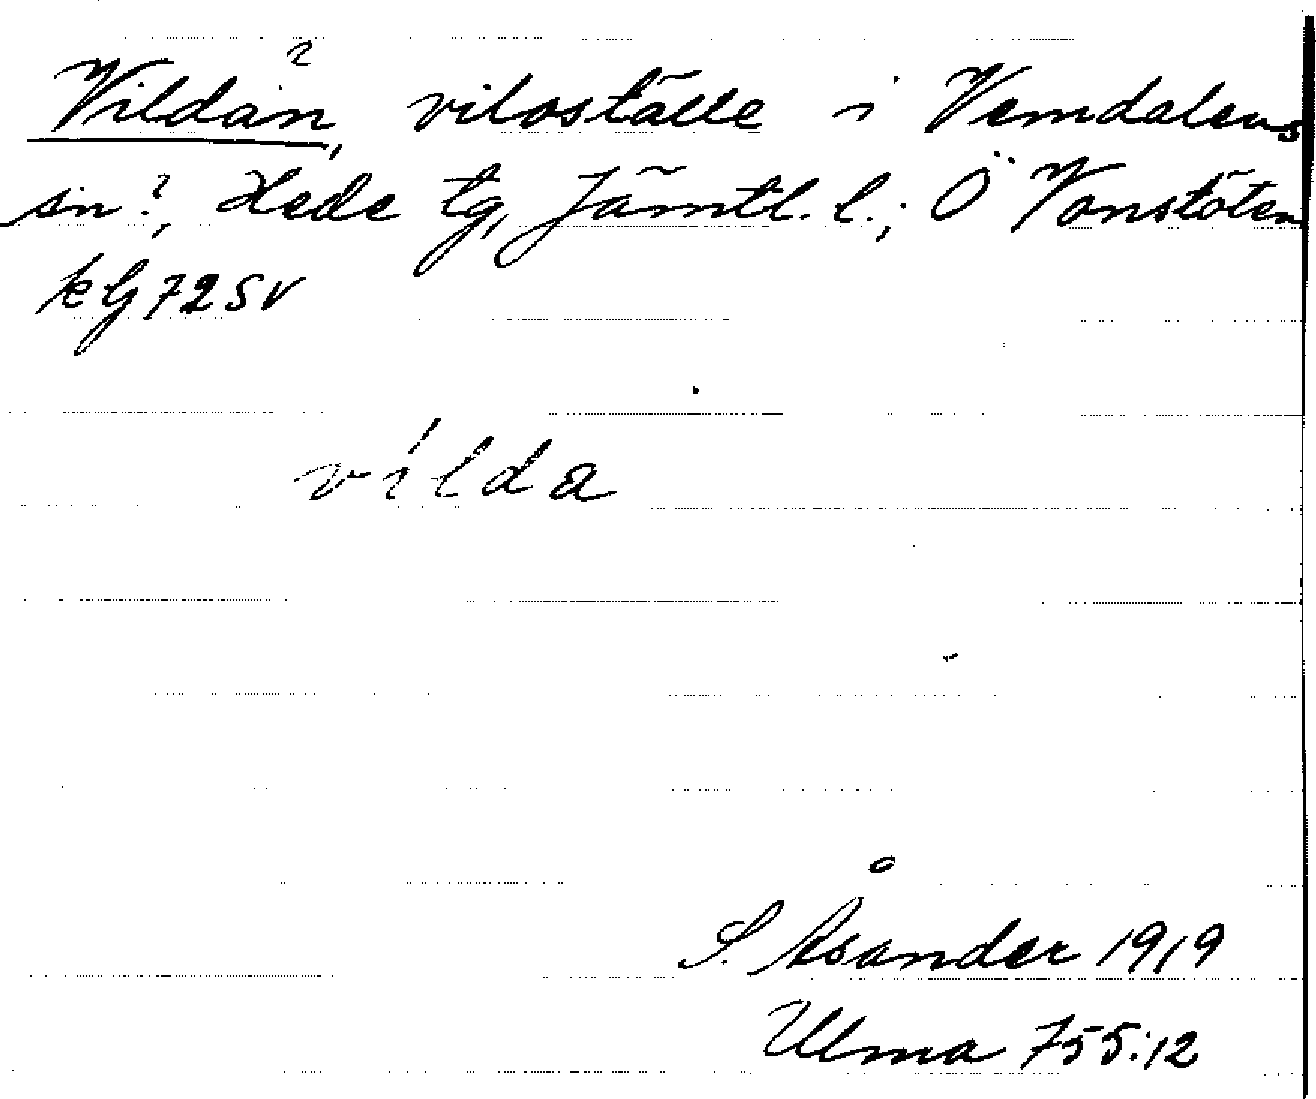 Vildan?, viloställe i Vemdalens
sn?, Hede tg, Jämtl. l.; Ö Vonstöten
kG 72 SV
vílda
S. Åsander 1919
Ulma 755:12